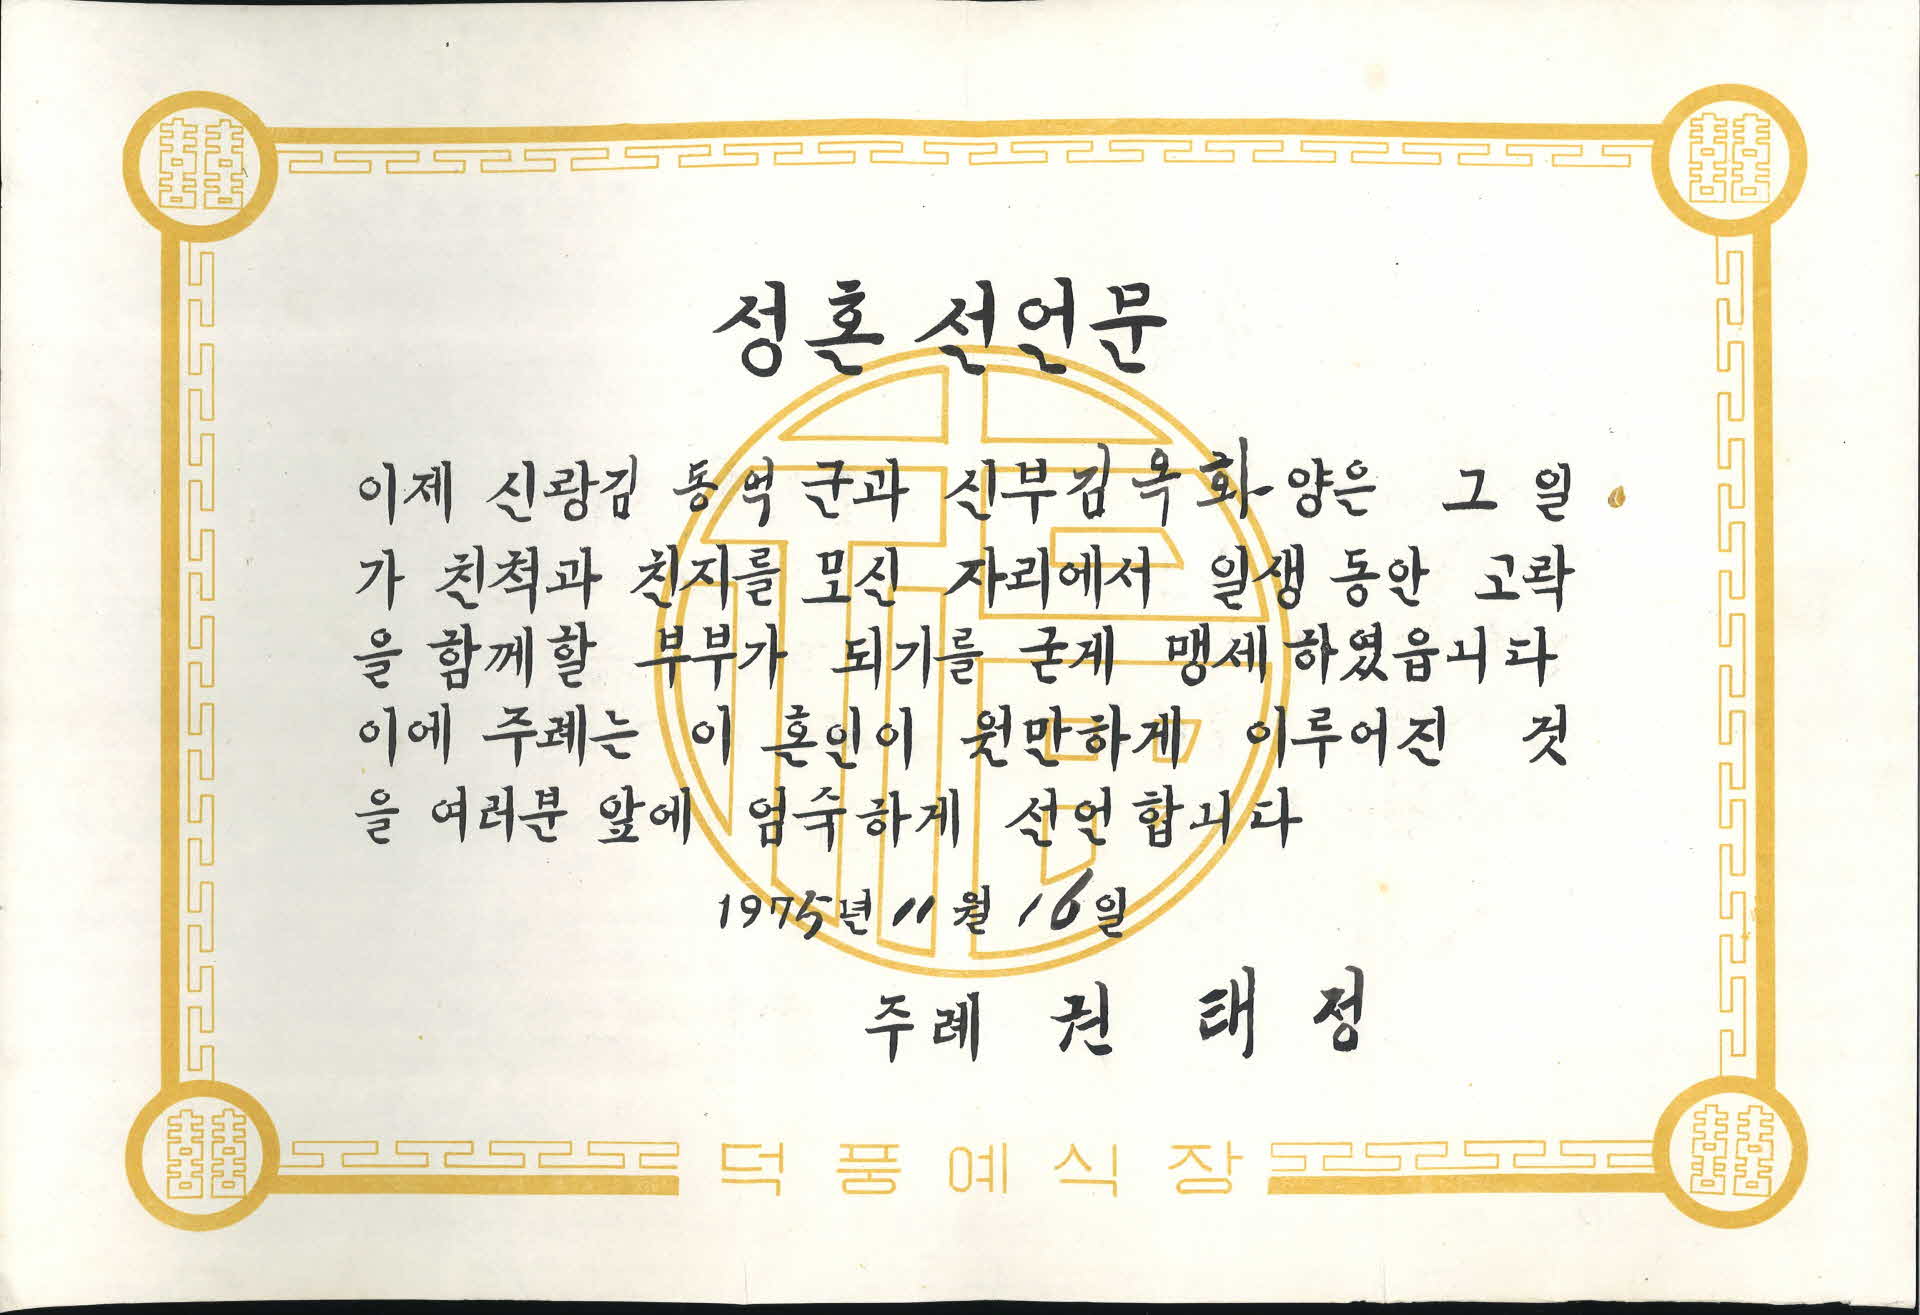 성혼 선언문
이제 신랑김 동억 군과 신부김옥화 양은 그 일
가 친척과 친지를 모신 자리에서 일생 동안 고락
을 함께할 부부가 되기를 굳게 맹세하였읍니다
이에 주례는 이 혼인이 원만하게 이루어진 것
을 여러분 앞에 엄숙하게 선언합니다
1975년 11월 16일
주례 권 태 정
덕풍예식장